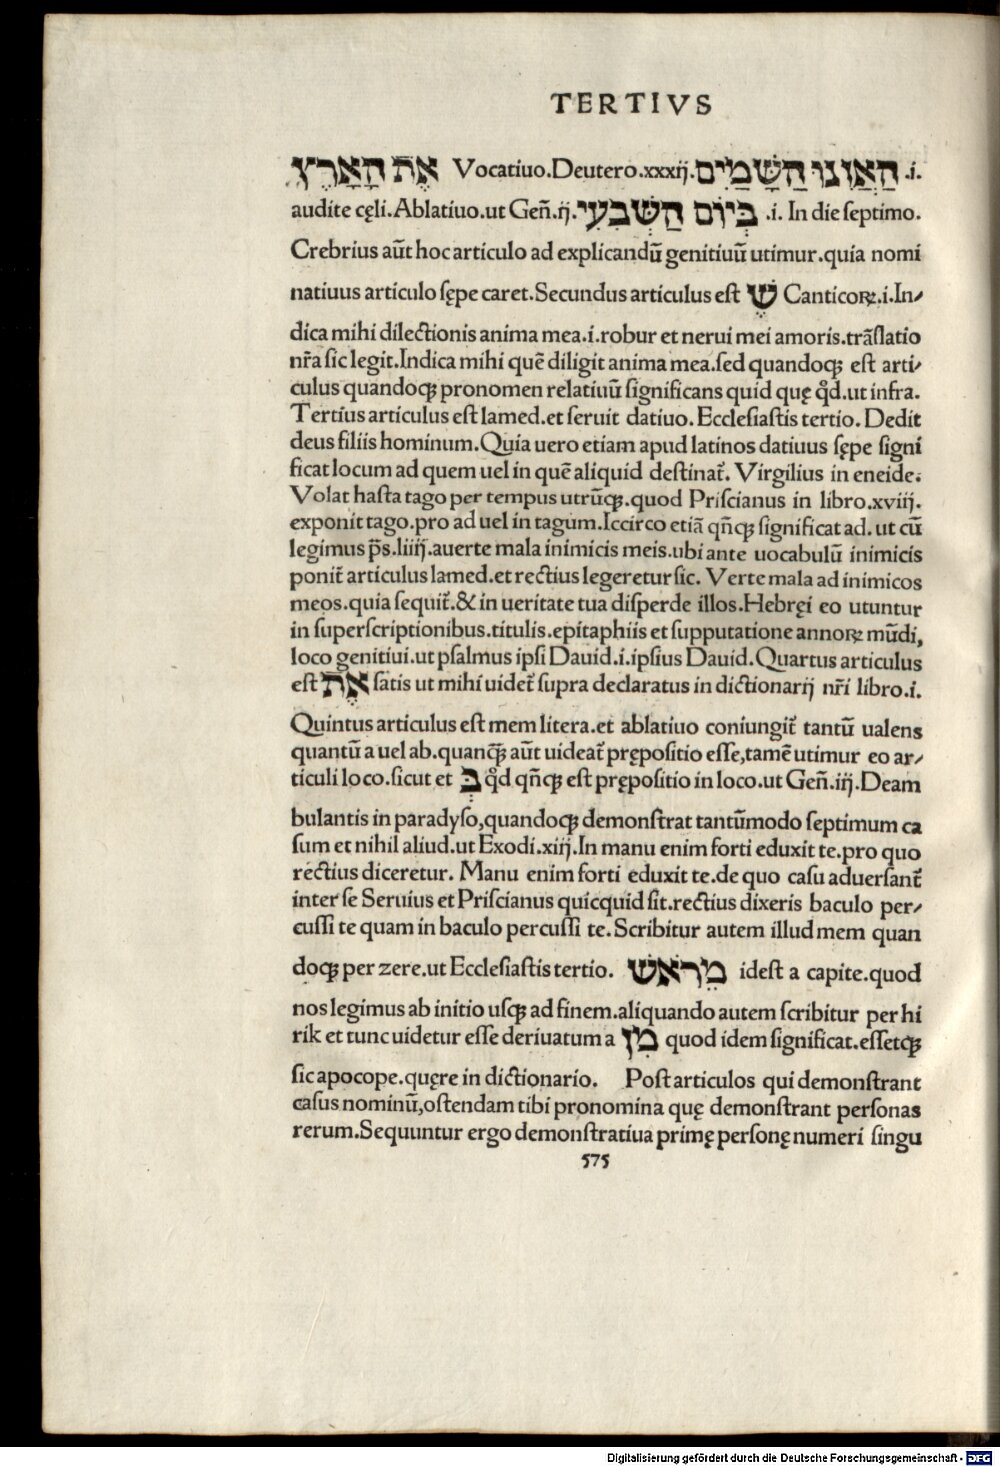 TERTIVS
אֶת הָאָרֶץ Vocatiuo.Deutero.xxxij.הַאֲזִנוּ הַשָּׁמַיִם.i.
audite cęli.Ablatiuo.ut Geñ.ij.בְּיוֹם הַשְּׁבִעִי.i. In die septimo.
Crebrius aūt hoc articulo ad explicandū genitiuū utimur.quia nomi
natiuus articulo sępe caret.Secundus articulus est שֶׁ Canticoꝝ.i.In⸗
dica mihi dilectionis anima mea.i.robur et nerui mei amoris.trãslatio
nr̃a sic legit.Indica mihi quē diligit anima mea.sed quandoqꝫ est arti⸗
culus quandoqꝫ pronomen relatiuū significans quid quę qđ.ut infra.
Tertius articulus est lamed.et seruit datiuo.Ecclesiastis tertio. Dedit
deus filiis hominum.Quia uero etiam apud latinos datiuus sępe signi
ficat locum ad quem uel in quē aliquid destinat̃. Virgilius in eneide.
Volat hasta tago per tempus utrūqꝫ.quod Priscianus in libro.xviij.
exponit tago.pro ad uel in tagum.Iccirco etiã qñqꝫ significat ad. ut cū
legimus p̃s.liiij.auerte mala inimicis meis.ubi ante uocabulū inimicis
ponit̃ articulus lamed.et rectius legeretur sic. Verte mala ad inimicos
meos.quia sequit̃.& in ueritate tua disperde illos.Hebręi eo utuntur
in superscriptionibus.titulis.epitaphiis et supputatione annoꝝ mūdi,
loco genitiui.ut psalmus ipsi Dauid.i.ipsius Dauid.Quartus articulus
est אֶת satis ut mihi uidet̃ supra declaratus in dictionarij nr̃i libro.i.
Quintus articulus est mem litera.et ablatiuo coniungit̃ tantū ualens
quantū a uel ab.quanqꝫ̃ aūt uideat̃ prępositio esse,tamē utimur eo ar⸗
ticuli loco.sicut et בְּ qđ qñqꝫ est prępositio in loco.ut Geñ.iij.Deam
bulantis in paradyso,quandoqꝫ demonstrat tantūmodo septimum ca
sum et nihil aliud.ut Exodi.xiij.In manu enim forti eduxit te.pro quo
rectius diceretur. Manu enim forti eduxit te.de quo casu aduersant̃
inter se Seruius et Priscianus quicquid sit.rectius dixeris baculo per⸗
cussi te quam in baculo percussi te.Scribitur autem illud mem quan
doqꝫ per zere.ut Ecclesiastis tertio. מֵרֹאשׁ idest a capite.quod
nos legimus ab initio usqꝫ ad finem.aliquando autem scribitur per hi
rik et tunc uidetur esse deriuatum a מִן quod idem significat.essetqꝫ
sic apocope.quęre in dictionario. Post articulos qui demonstrant
casus nominū,ostendam tibi pronomina quę demonstrant personas
rerum.Sequuntur ergo demonstratiua primę personę numeri singu
575
Digitalisierung gefördert durch die Deutsche Forschungsgemeinschaft - DFG